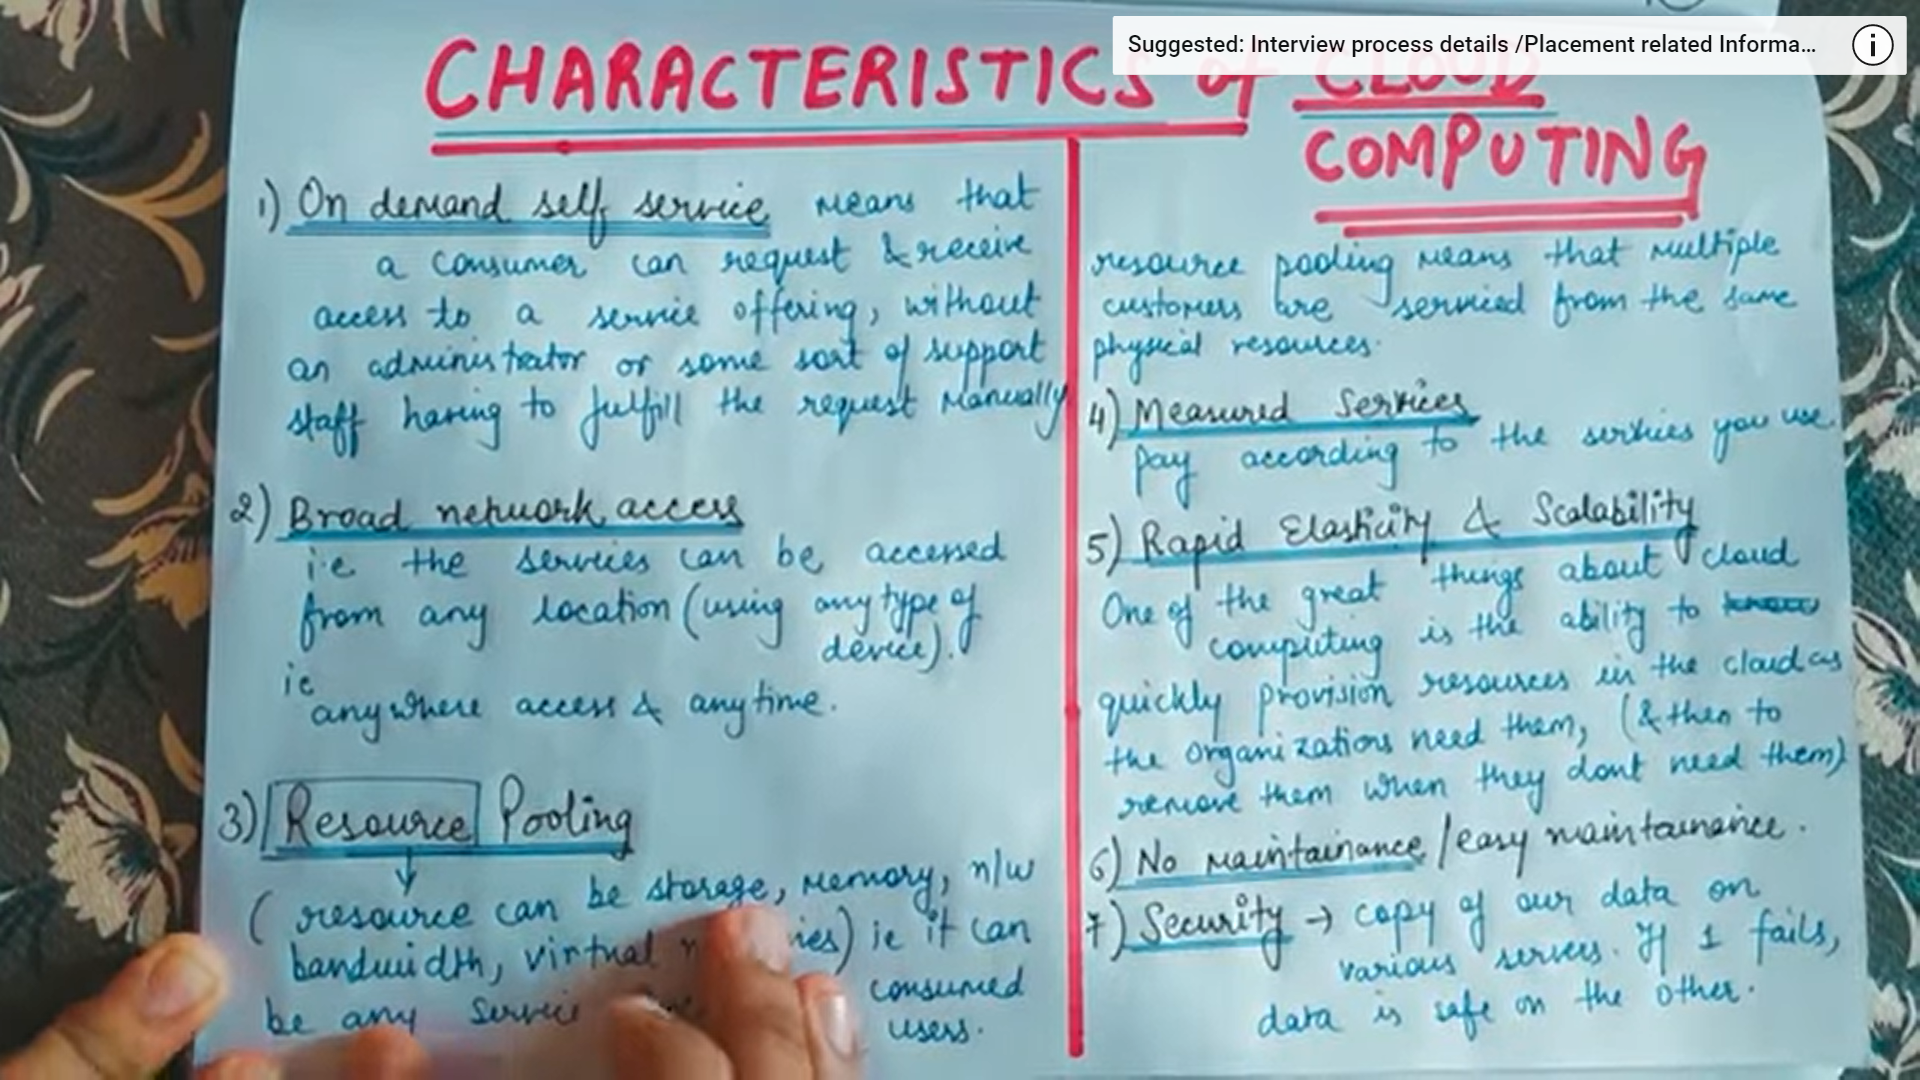 Suggested: Interview process details /Placement related Informa...
CHARACTERISTICS of CLOUD
COMPUTING
1) On demand self service means that
a consumer can request & receive
access to a service offering, without
an administrator or some sort of support
staff having to fulfill the request manually
2) Broad network access
i.e the services can be accessed
from any location (using any type of
device).
ie
anywhere access & anytime.
3) Resource Pooling
( resource can be storage, memory, n/w
bandwidth, virtual ie it can
be any service consumed
users.
resource pooling means that multiple
customers are serviced from the same
physical resources.
4) Measured Services
pay according to the services you use.
5) Rapid Elasticity & Scalability
One of the great things about cloud
computing is the ability to
quickly provision resources in the cloud as
the organizations need them, (& then to
remove them when they dont need them)
6) No maintainance / easy maintainance.
7) Security → copy of our data on
various servers. If 1 fails,
data is safe on the other.